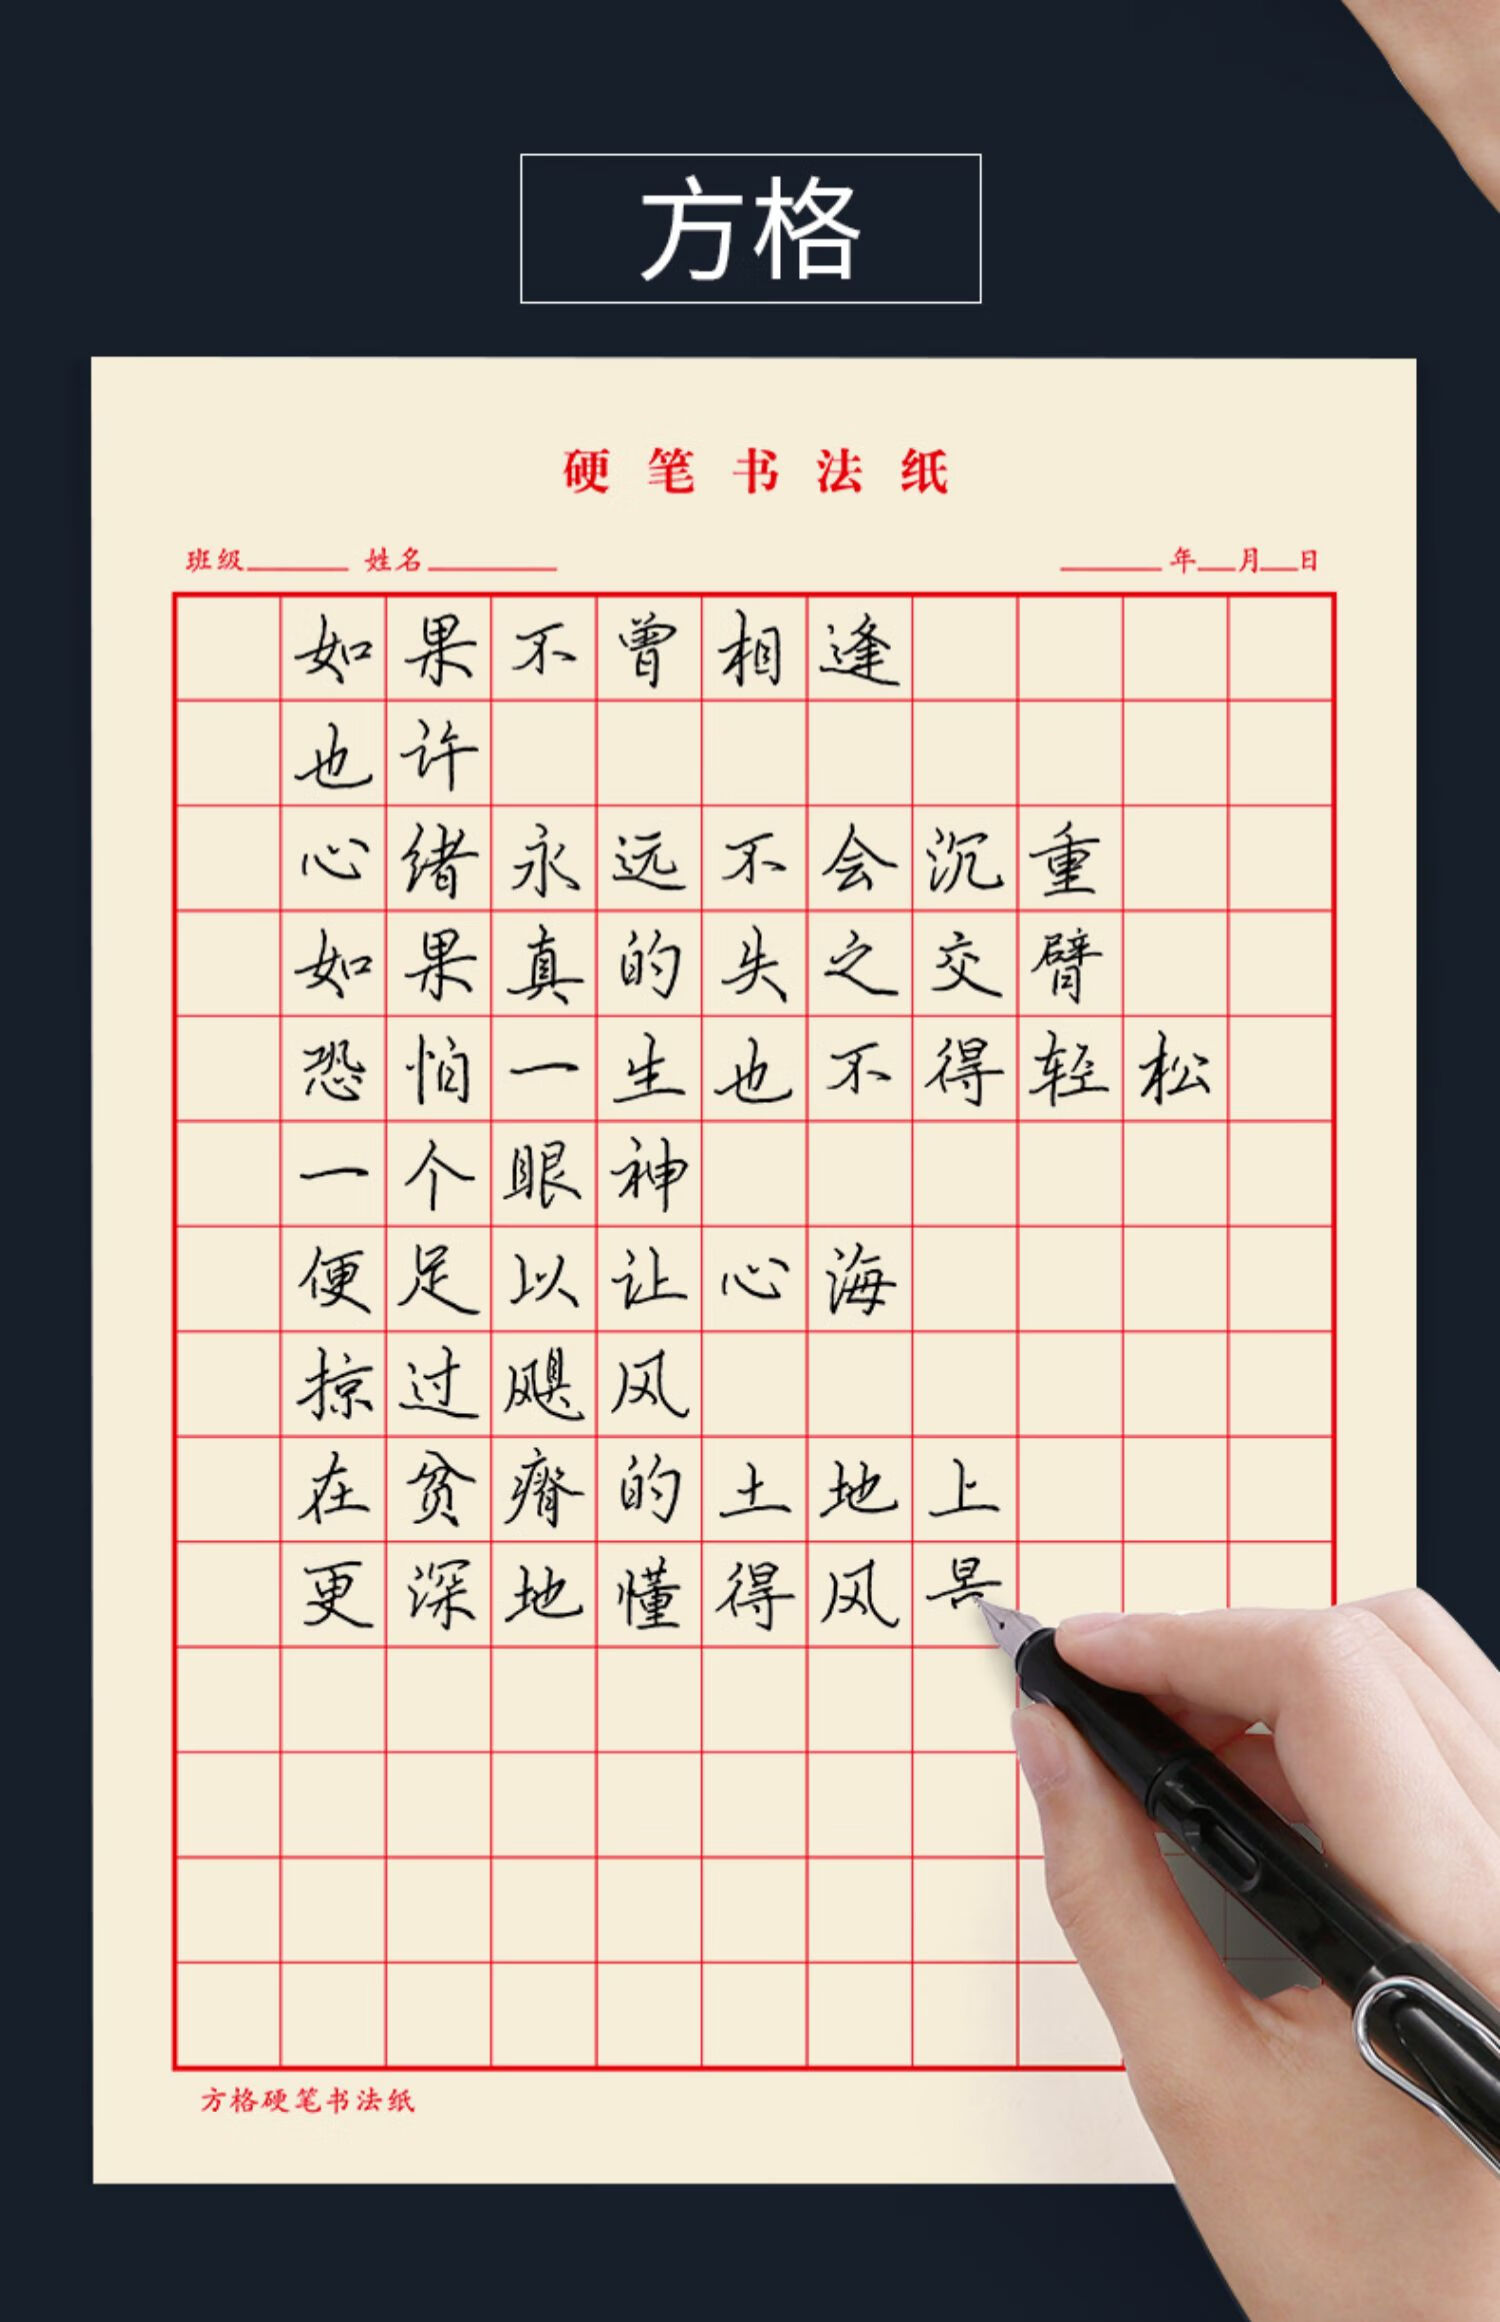 方格
硬笔书法纸
班级 姓名 年 月 日
如果不曾相逢
也许
心绪永远不会沉重
如果真的失之交臂
恐怕一生也不得轻松
一个眼神
便足以让心海
掠过飓风
在贫瘠的土地上
更深地懂得风景
方格硬笔书法纸